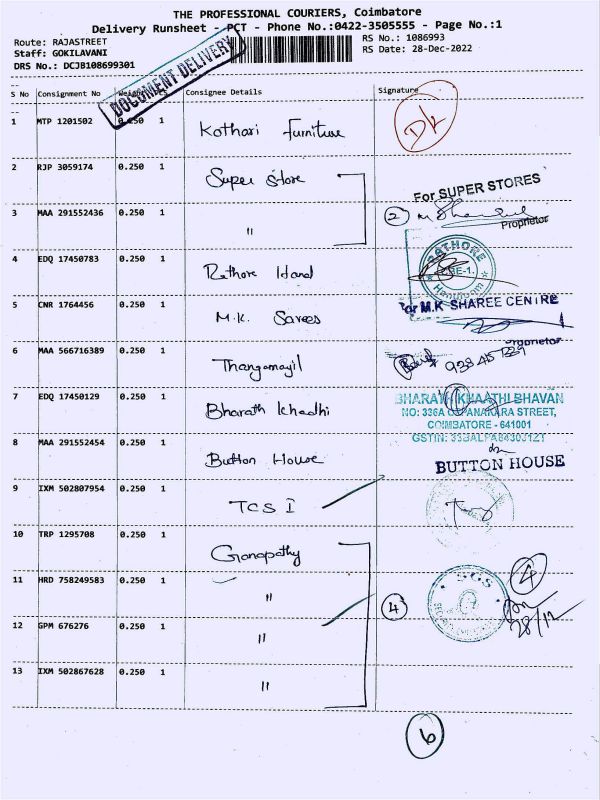 THE PROFESSIONAL COURIERS, Coimbatore
Delivery Runsheet - PCT - Phone No.:0422-3505555 - Page No.:1
Route: RAJASTREET
RS No.: 1086993
Staff: GOKILAVANI
RS Date: 28-Dec-2022
DRS No.: DCJB108699301
DOCUMENT DELIVERY
S No Consignment No Weight PCS Consignee Details Signature
1 MTP 1201502 0.250 1 Kothari Furniture
2 RJP 3059174 0.250 1 Super Store
For SUPER STORES
3 MAA 291552436 0.250 1 "
2
Proprietor
4 EDQ 17450783 0.250 1 Rathore
RATHORE
5 CNR 1764456 0.250 1 M.K. Sarees
For M.K SHAREE CENTRE
Proprietor
6 MAA 566716389 0.250 1 Thangamayil
7 EDQ 17450129 0.250 1 Bharath Khadhi
BHARATH KHAATHI BHAVAN
COIMBATORE - 641001
8 MAA 291552454 0.250 1 Button House
BUTTON HOUSE
9 IXM 502807954 0.250 1 TCS I
10 TRP 1295708 0.250 1 Ganapathy
4
11 HRD 758249583 0.250 1 "
4
SGS
28/12
12 GPM 676276 0.250 1 "
13 IXM 502867628 0.250 1 "
6